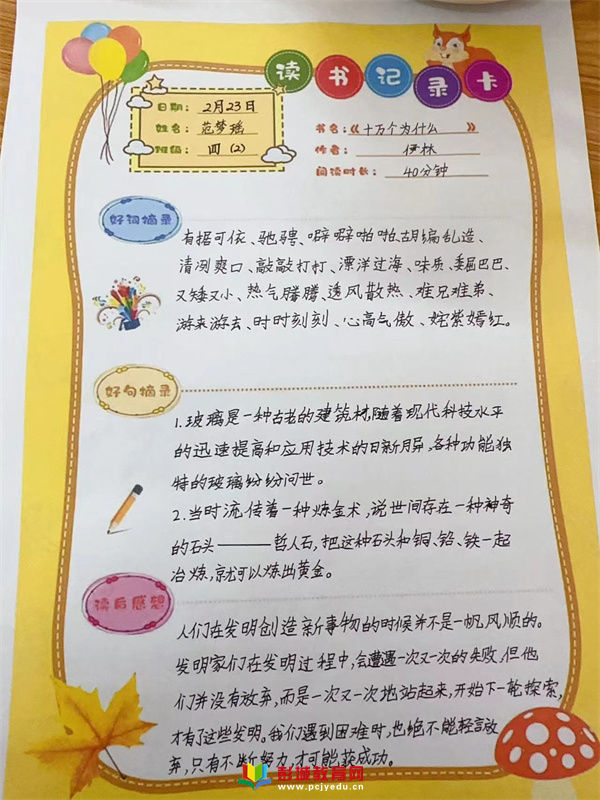 读书记录卡
日期：2月23日
姓名：范梦瑶
班级：四（2）
书名：《十万个为什么》
作者：伊林
阅读时长：40分钟
好词摘录
有据可依、驰骋、噼噼啪啪、胡编乱造、
清冽爽口、敲敲打打、漂洋过海、味质、委屈巴巴、
又矮又小、热气腾腾、透风散热、难兄难弟、
游来游去、时时刻刻、心高气傲、姹紫嫣红。
好句摘录
1.玻璃是一种古老的建筑材,随着现代科技水平
的迅速提高和应用技术的日新月异,各种功能独
特的玻璃纷纷问世。
2.当时流传着一种炼金术,说世间存在一种神奇
的石头——哲人石,把这种石头和铜、铅、铁一起
冶炼,就可以炼出黄金。
读后感想
人们在发明创造新事物的时候并不是一帆风顺的。
发明家们在发明过程中,会遭遇一次又一次的失败,但他
们并没有放弃,而是一次又一次地站起来,开始下一轮探索,
才有了这些发明。我们遇到困难时,也绝不能轻言放
弃,只有不断努力,才可能获成功。
彭博教育网
www.pcjyedu.cn